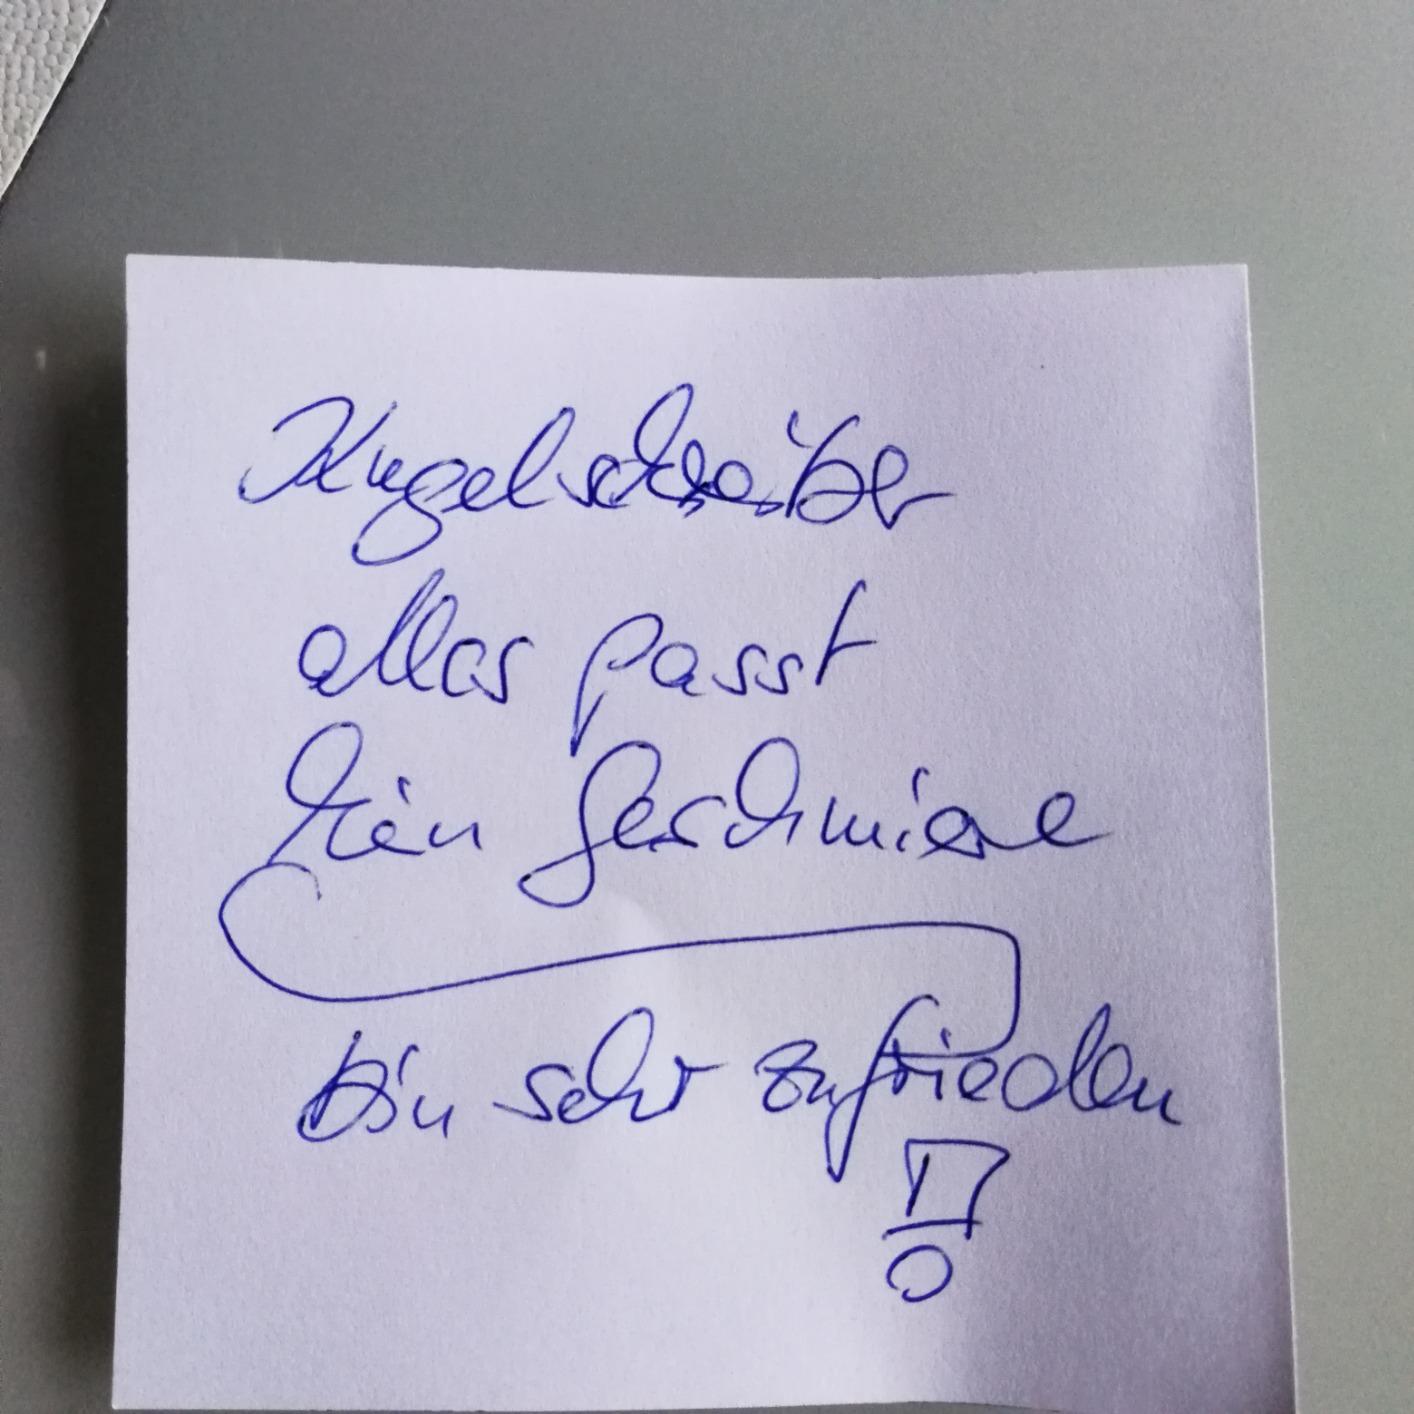 Kugelschreiber
alles passt
kein Geschmiere
bin sehr zufrieden
!